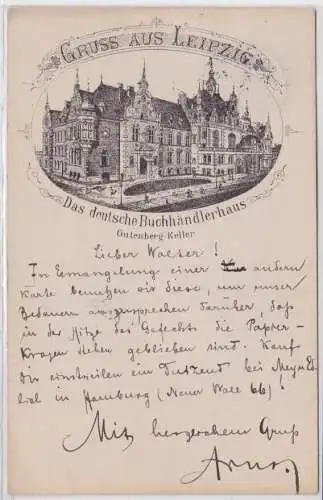 GRUSS AUS LEIPZIG
Das deutsche Buchhändlerhaus
Gutenberg-Keller
Lieber Walser!
In Ermangelung einer andern
Karte benutzen wir diese, um unser
Bedauern auszusprechen darüber, daß
in der Hitze des Gefechts die Papier-
Kragen stehen geblieben sind. Kauf
Dir einstweilen ein Dutzend bei Mey
in Hamburg (Neuer Wall 66)!
Mit herzlichem Gruß